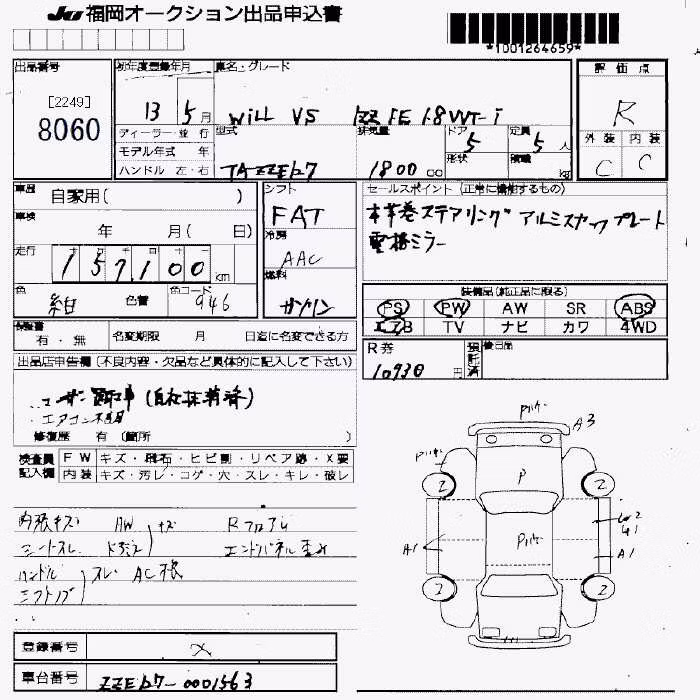 JU 福岡オークション出品申込書
*1001264659*
出品番号 初年度登録年月 車名・グレード 評価点
[2249]
8060
13 5月 WiLL VS 1ZZ FE 1.8 VVT-i R
ディーラー・並行 型式 排気量 ドア 定員 外装 内装
モデル年式 年 5 5人
ハンドル 左・右 TA-ZZE127 1800cc 形状 積載 kg C C
車歴 自家用( ) シフト セールスポイント (正常に機能するもの)
FAT 本革巻ステアリング アルミスカッフプレート
車検 年 月( 日) 冷房 電格ミラー
走行 157100km AAC
燃料 装備品(純正品に限る)
色 紺 色替 色コード 946 ガソリン PS PW AW SR ABS
エアB TV ナビ カワ 4WD
保証書 有・無 名変期限 月 日迄に名変できる方
R券 預託済 後日品
10930円
出品店申告欄(不良内容・欠品など具体的に記入して下さい)
エアコン不良
修復歴 有 (箇所 )
検査員記入欄 FW キズ・飛石・ヒビ割・リペア跡・X要
内装 キズ・汚レ・コゲ・穴・スレ・キレ・破レ
内張キズ AW キズ Rフロア
シートスレ ドラミラ エンドパネル歪み
ハンドル スレ AC
シフトノブ
A3
P
2 2
A1 A1
2 2
登録番号 x
車台番号 ZZE127-0001563